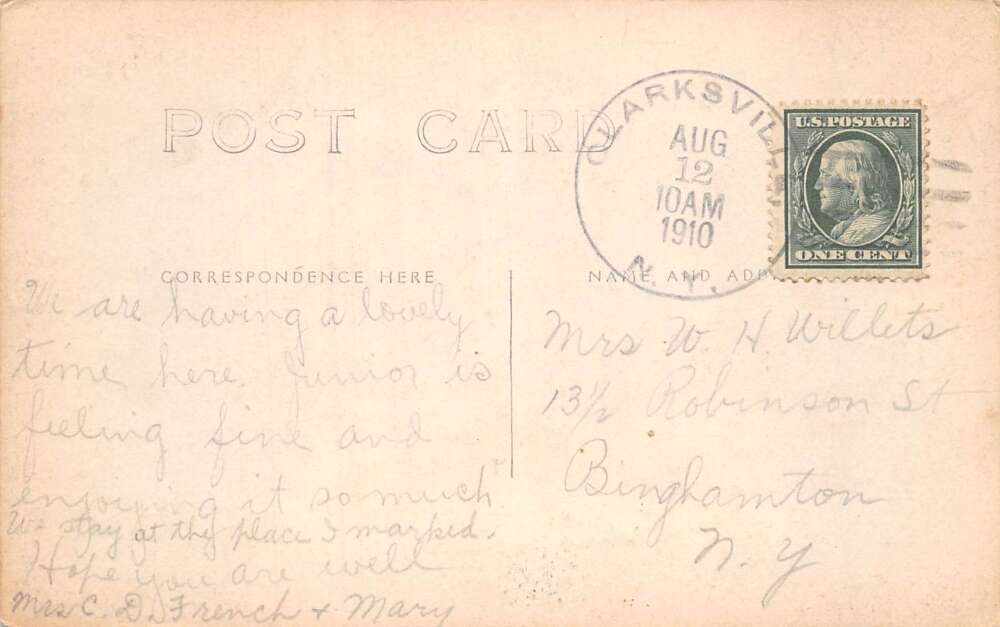 POST CARD
CLARKSVILLE
AUG
12
10AM
1910
N.Y.
U.S. POSTAGE
ONE CENT
CORRESPONDENCE HERE
We are having a lovely
time here. Junior is
feeling fine and
enjoying it so much
We stay at the place I marked.
Hope you are well
Mrs C. D. French + Mary
NAME AND ADD
Mrs W. H. Willets
13½ Robinson St
Binghamton
N. Y